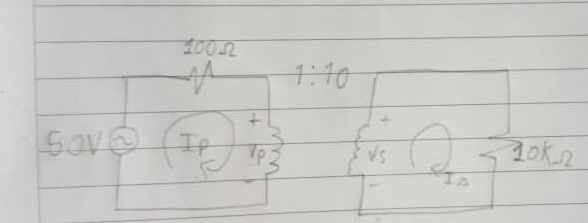 100Ω
1:10
50V
Ip
+
Vp
-
+
Vs
-
Is
10KΩ